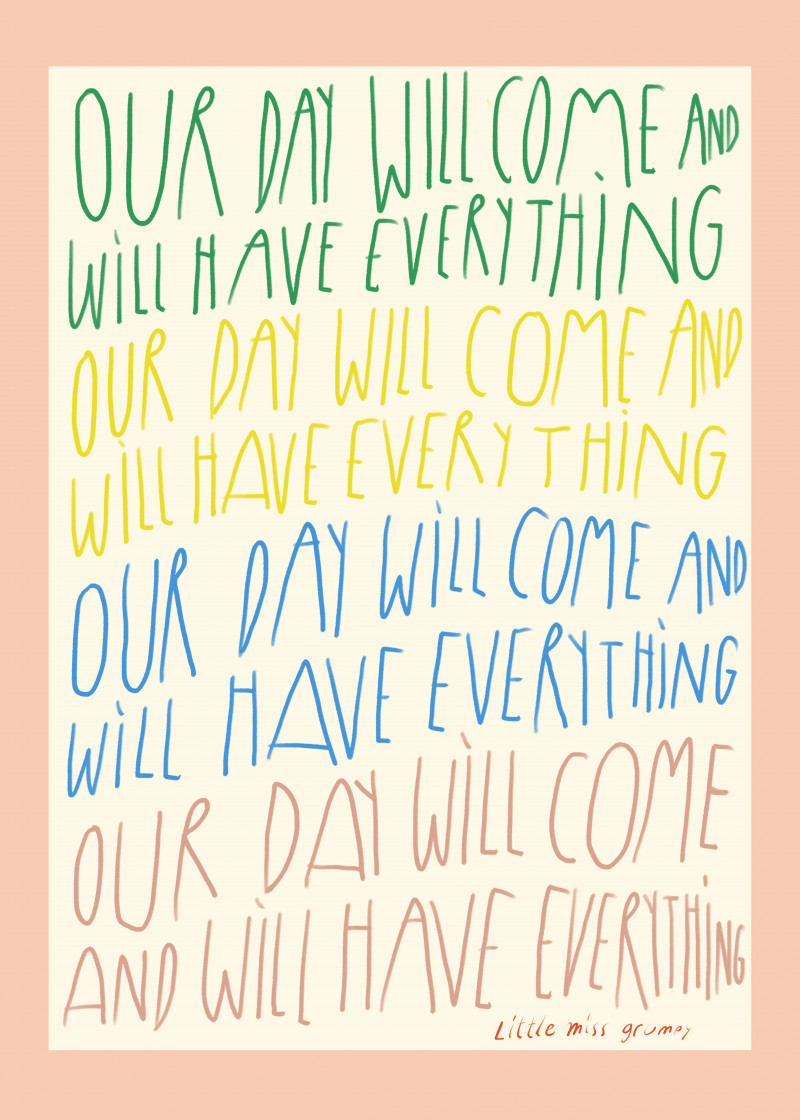 OUR DAY WILL COME AND
WILL HAVE EVERYTHING
OUR DAY WILL COME AND
WILL HAVE EVERYTHING
OUR DAY WILL COME AND
WILL HAVE EVERYTHING
OUR DAY WILL COME
AND WILL HAVE EVERYTHING
Little miss grumpy